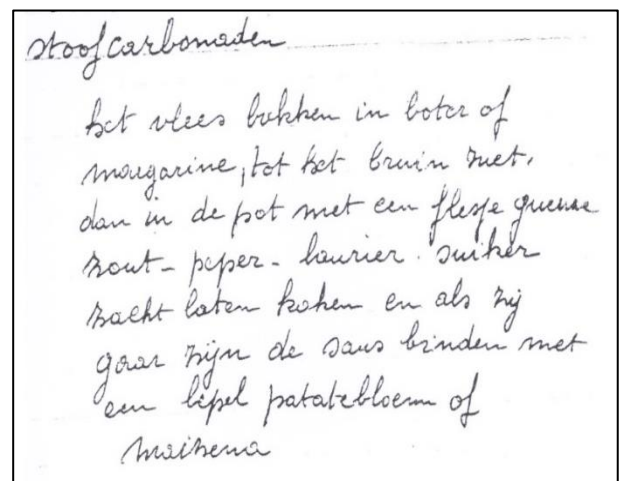 stoofcarbonaden
het vlees bakken in boter of
margarine, tot het bruin ziet,
dan in de pot met een flesje gueuze
zout - peper - laurier - suiker
zacht laten koken en als zij
gaar zijn de saus binden met
een lepel patatebloem of
maizena